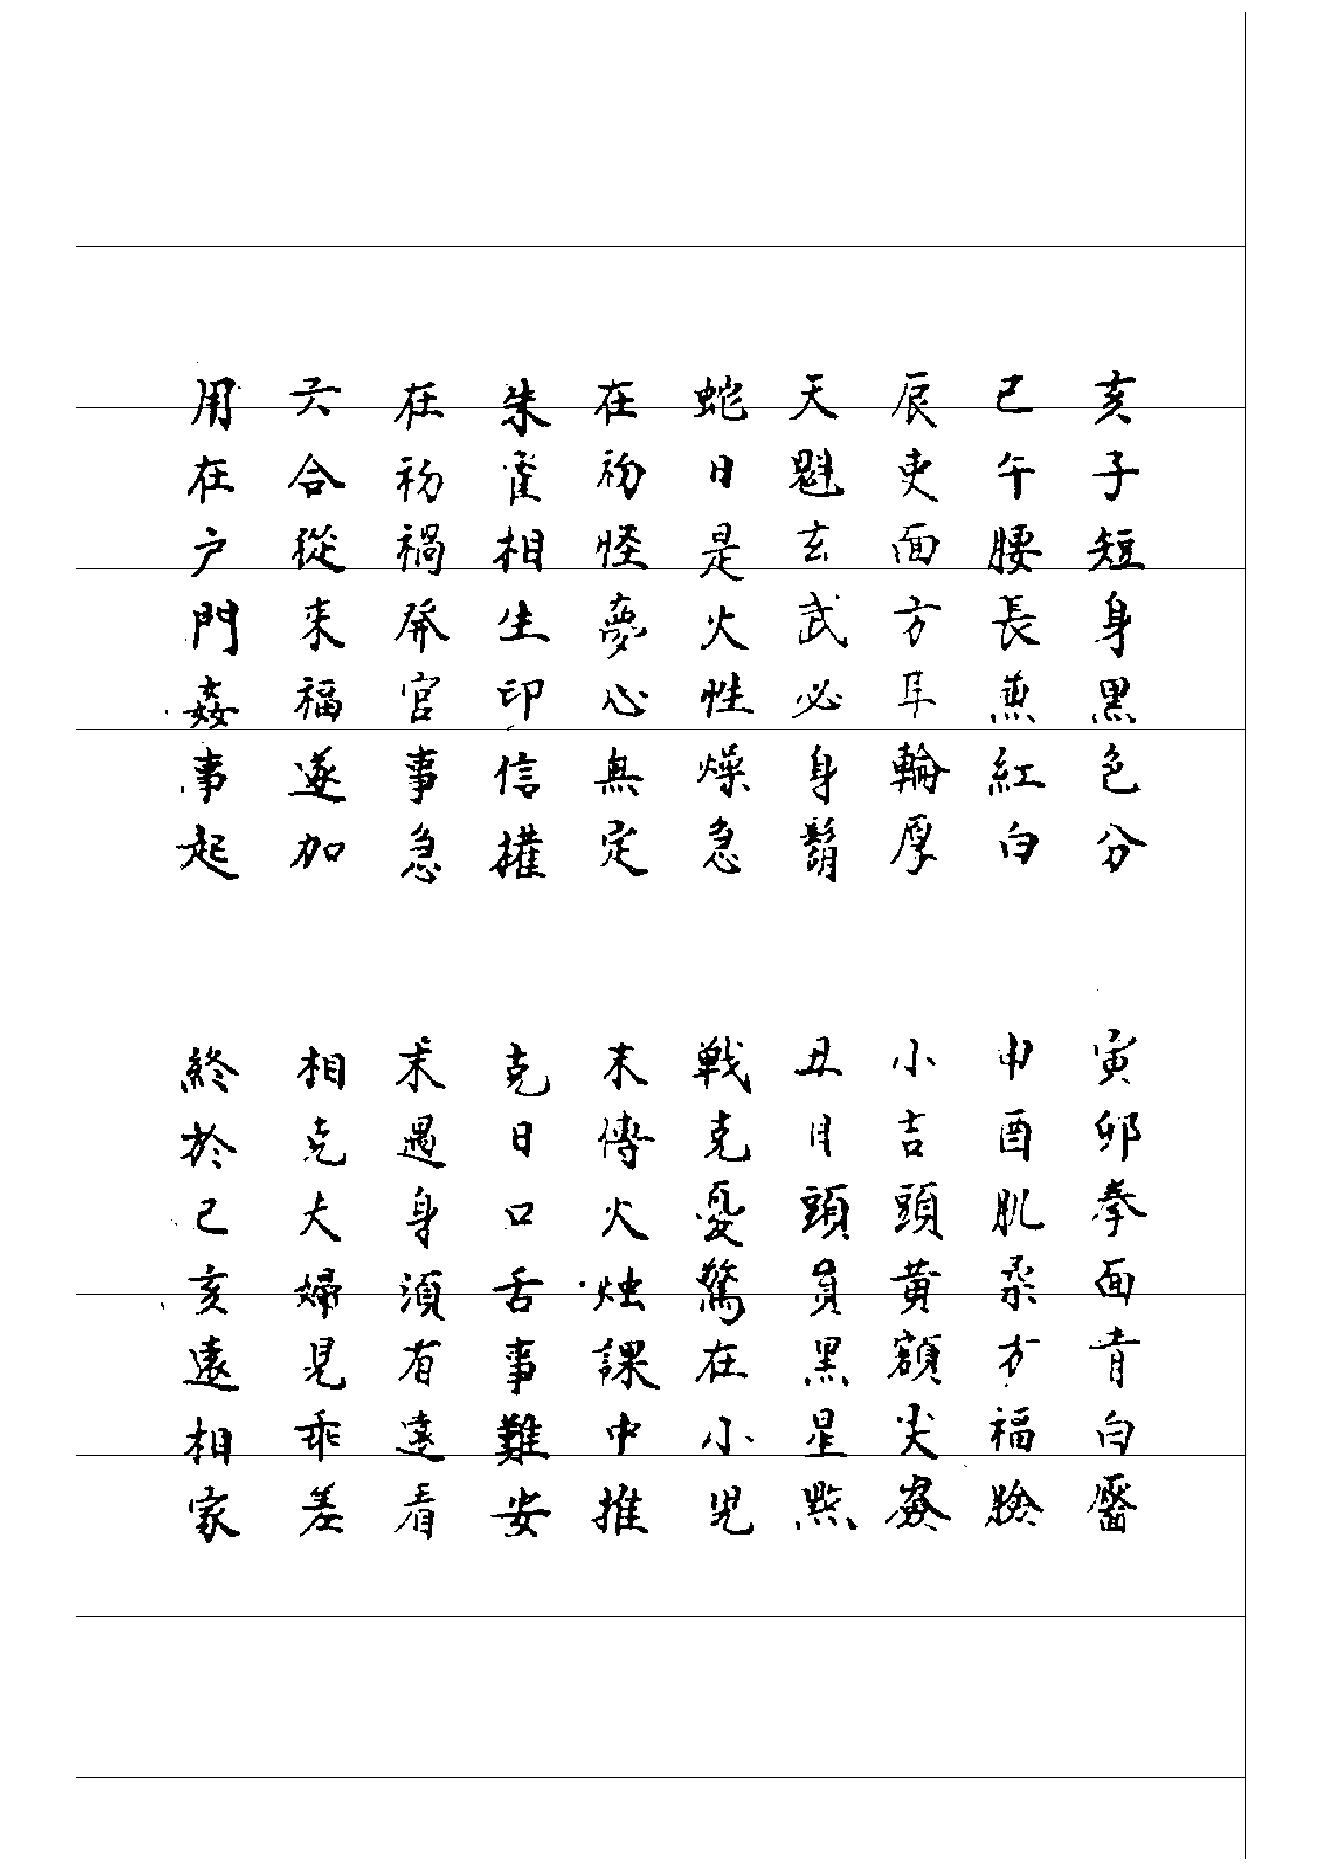 亥子短身黑色分 寅卯拳面青白
巳午腰長兼紅白 申酉肌柔方福臉
辰吏面方耳輪厚 小吉頭黄額尖
天魁玄武必身鬍 丑月頭員黑星點
蛇日是火性燥急 戦克憂驚在小児
在初怪夢心無定 末傳火烛課中推
朱雀相生印信權 克日口舌事難安
在初禍發官事急 末遇身須有達看
六合從来福遂加 相克夫婦見乖差
用在户門姦事起 終於己亥遠相家